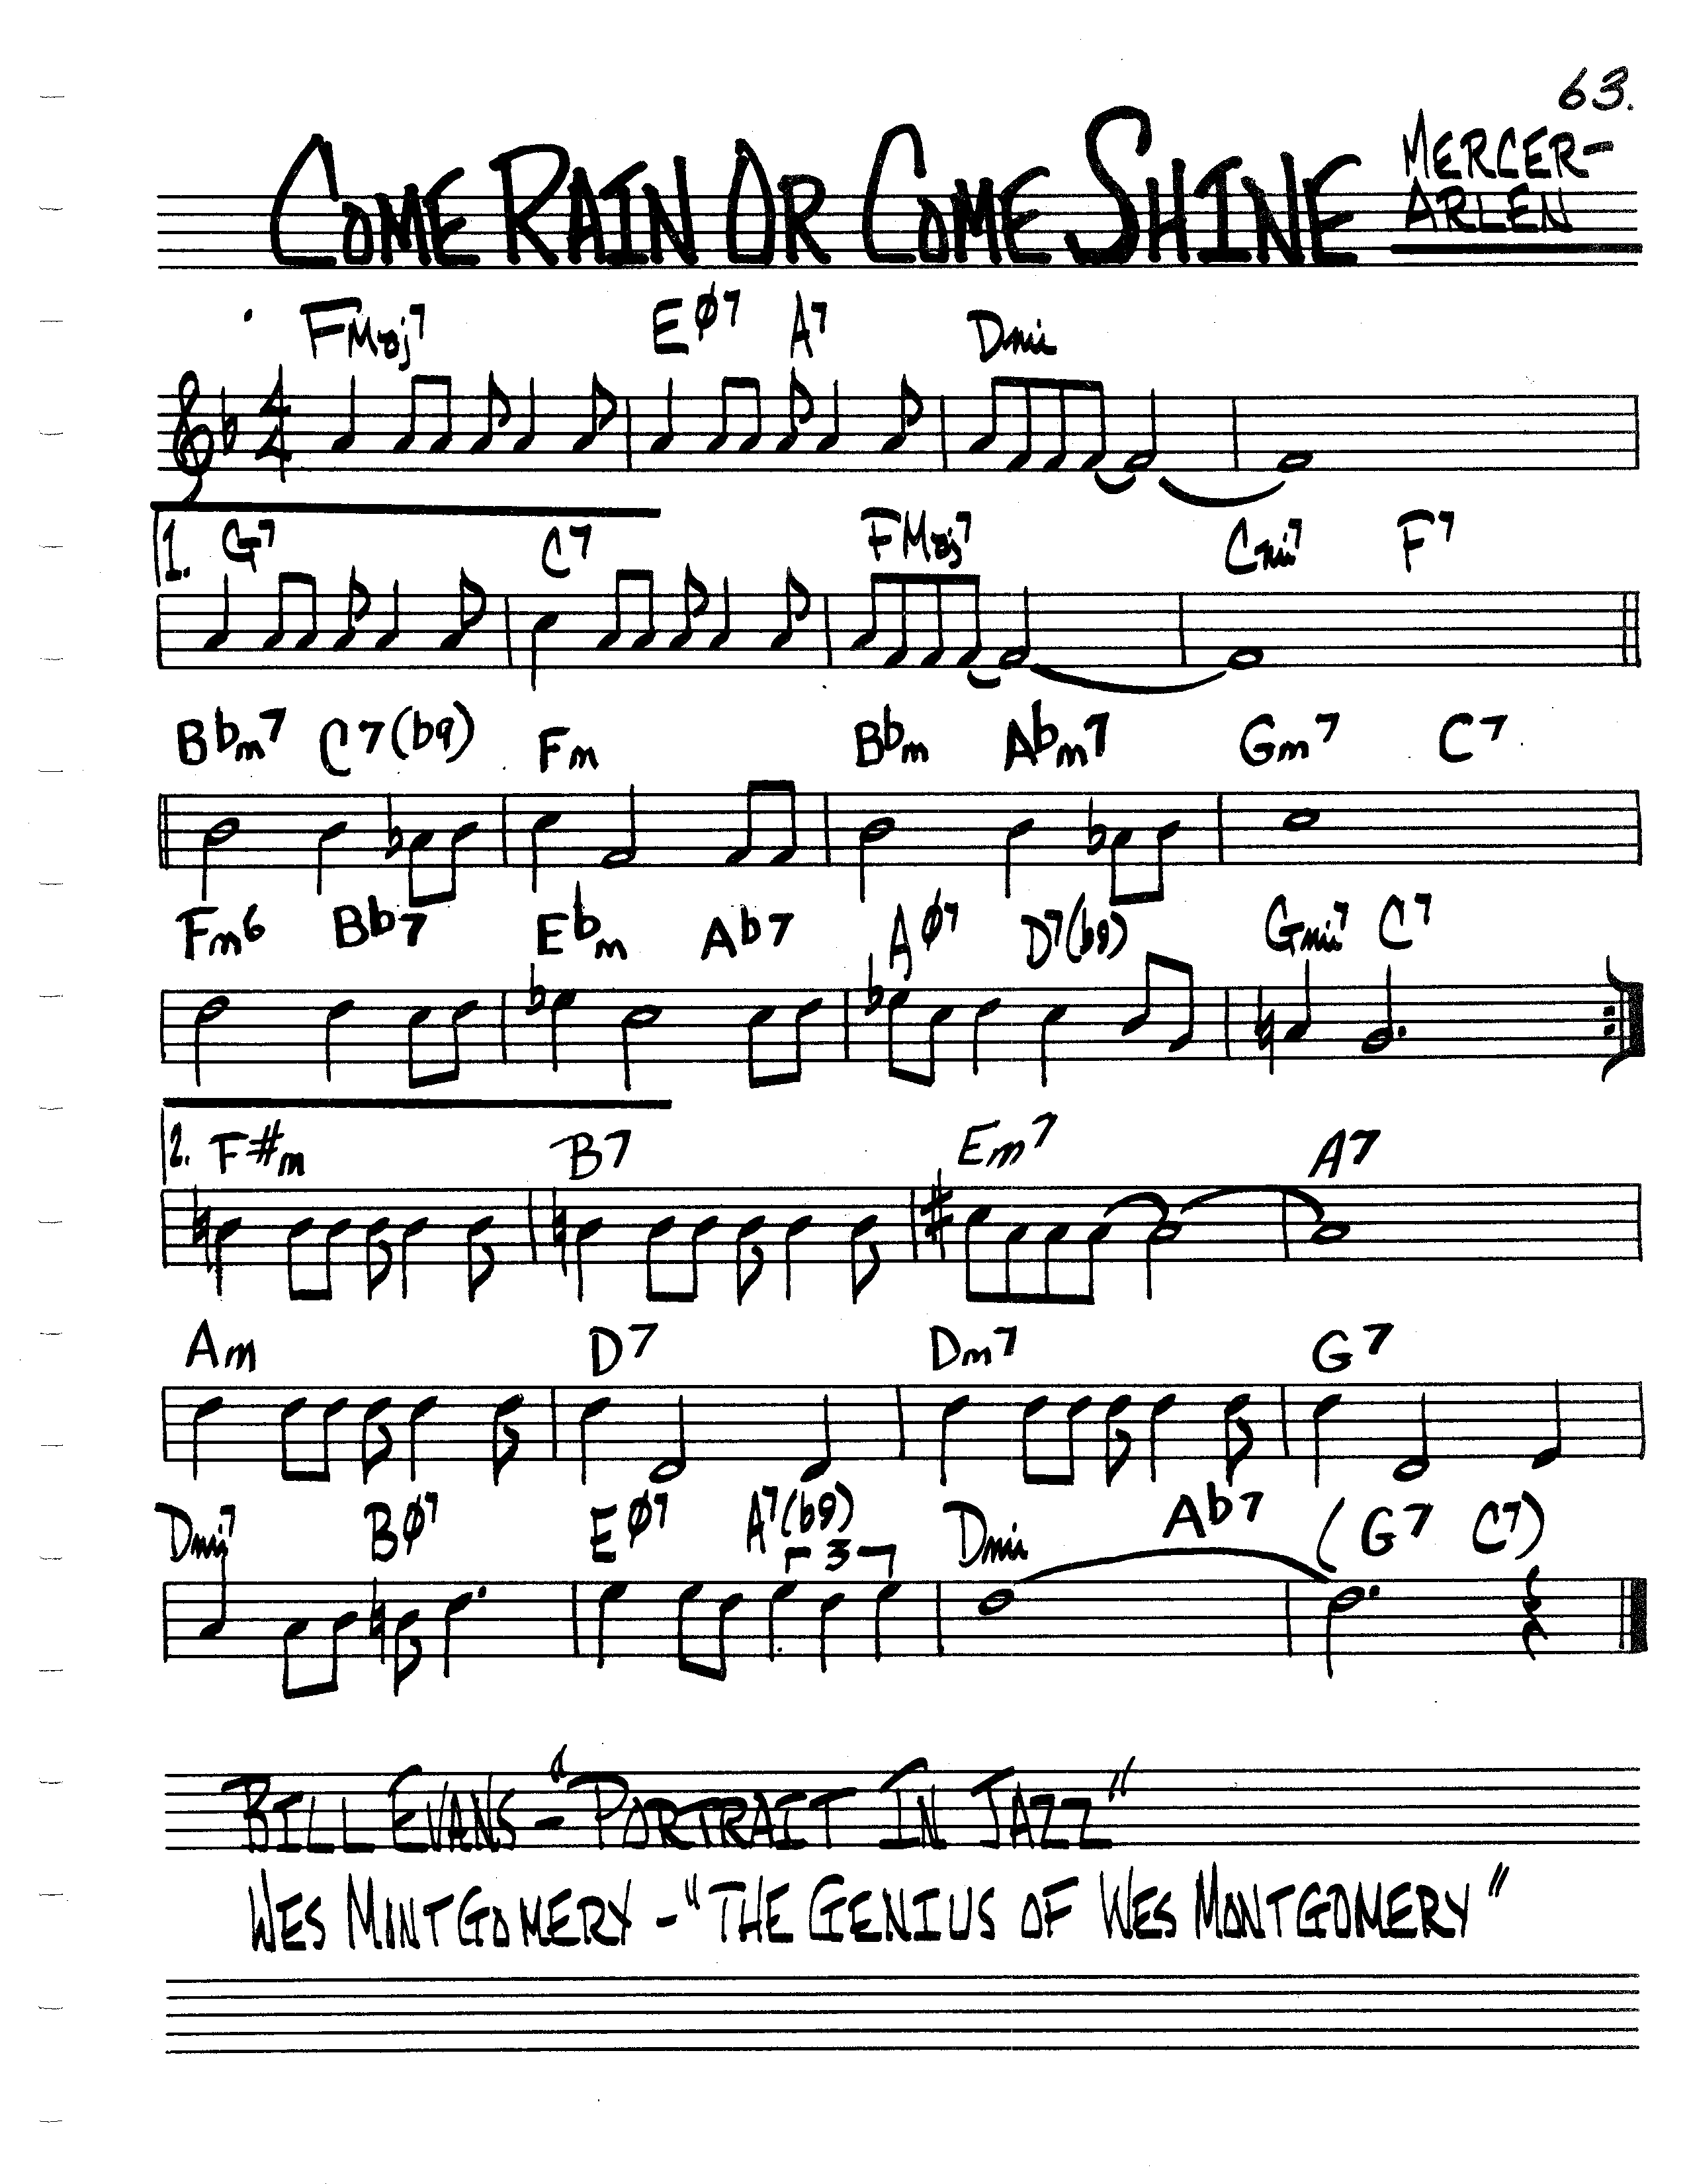 63.
COME RAIN OR COME SHINE
MERCER-
ARLEN
FMaj7 EØ7 A7 Dmi
4/4
1. G7 C7 FMaj7 Cmi7 F7
Bbm7 C7(b9) Fm Bbm Abm7 Gm7 C7
Fm6 Bb7 Ebm Ab7 AØ7 D7(b9) Gmi7 C7
2. F#m B7 Em7 A7
Am D7 Dm7 G7
Dmi7 BØ7 EØ7 A7(b9) Dmi Ab7 (G7 C7)
3
BILL EVANS - "PORTRAIT IN JAZZ"
WES MONTGOMERY - "THE GENIUS OF WES MONTGOMERY"